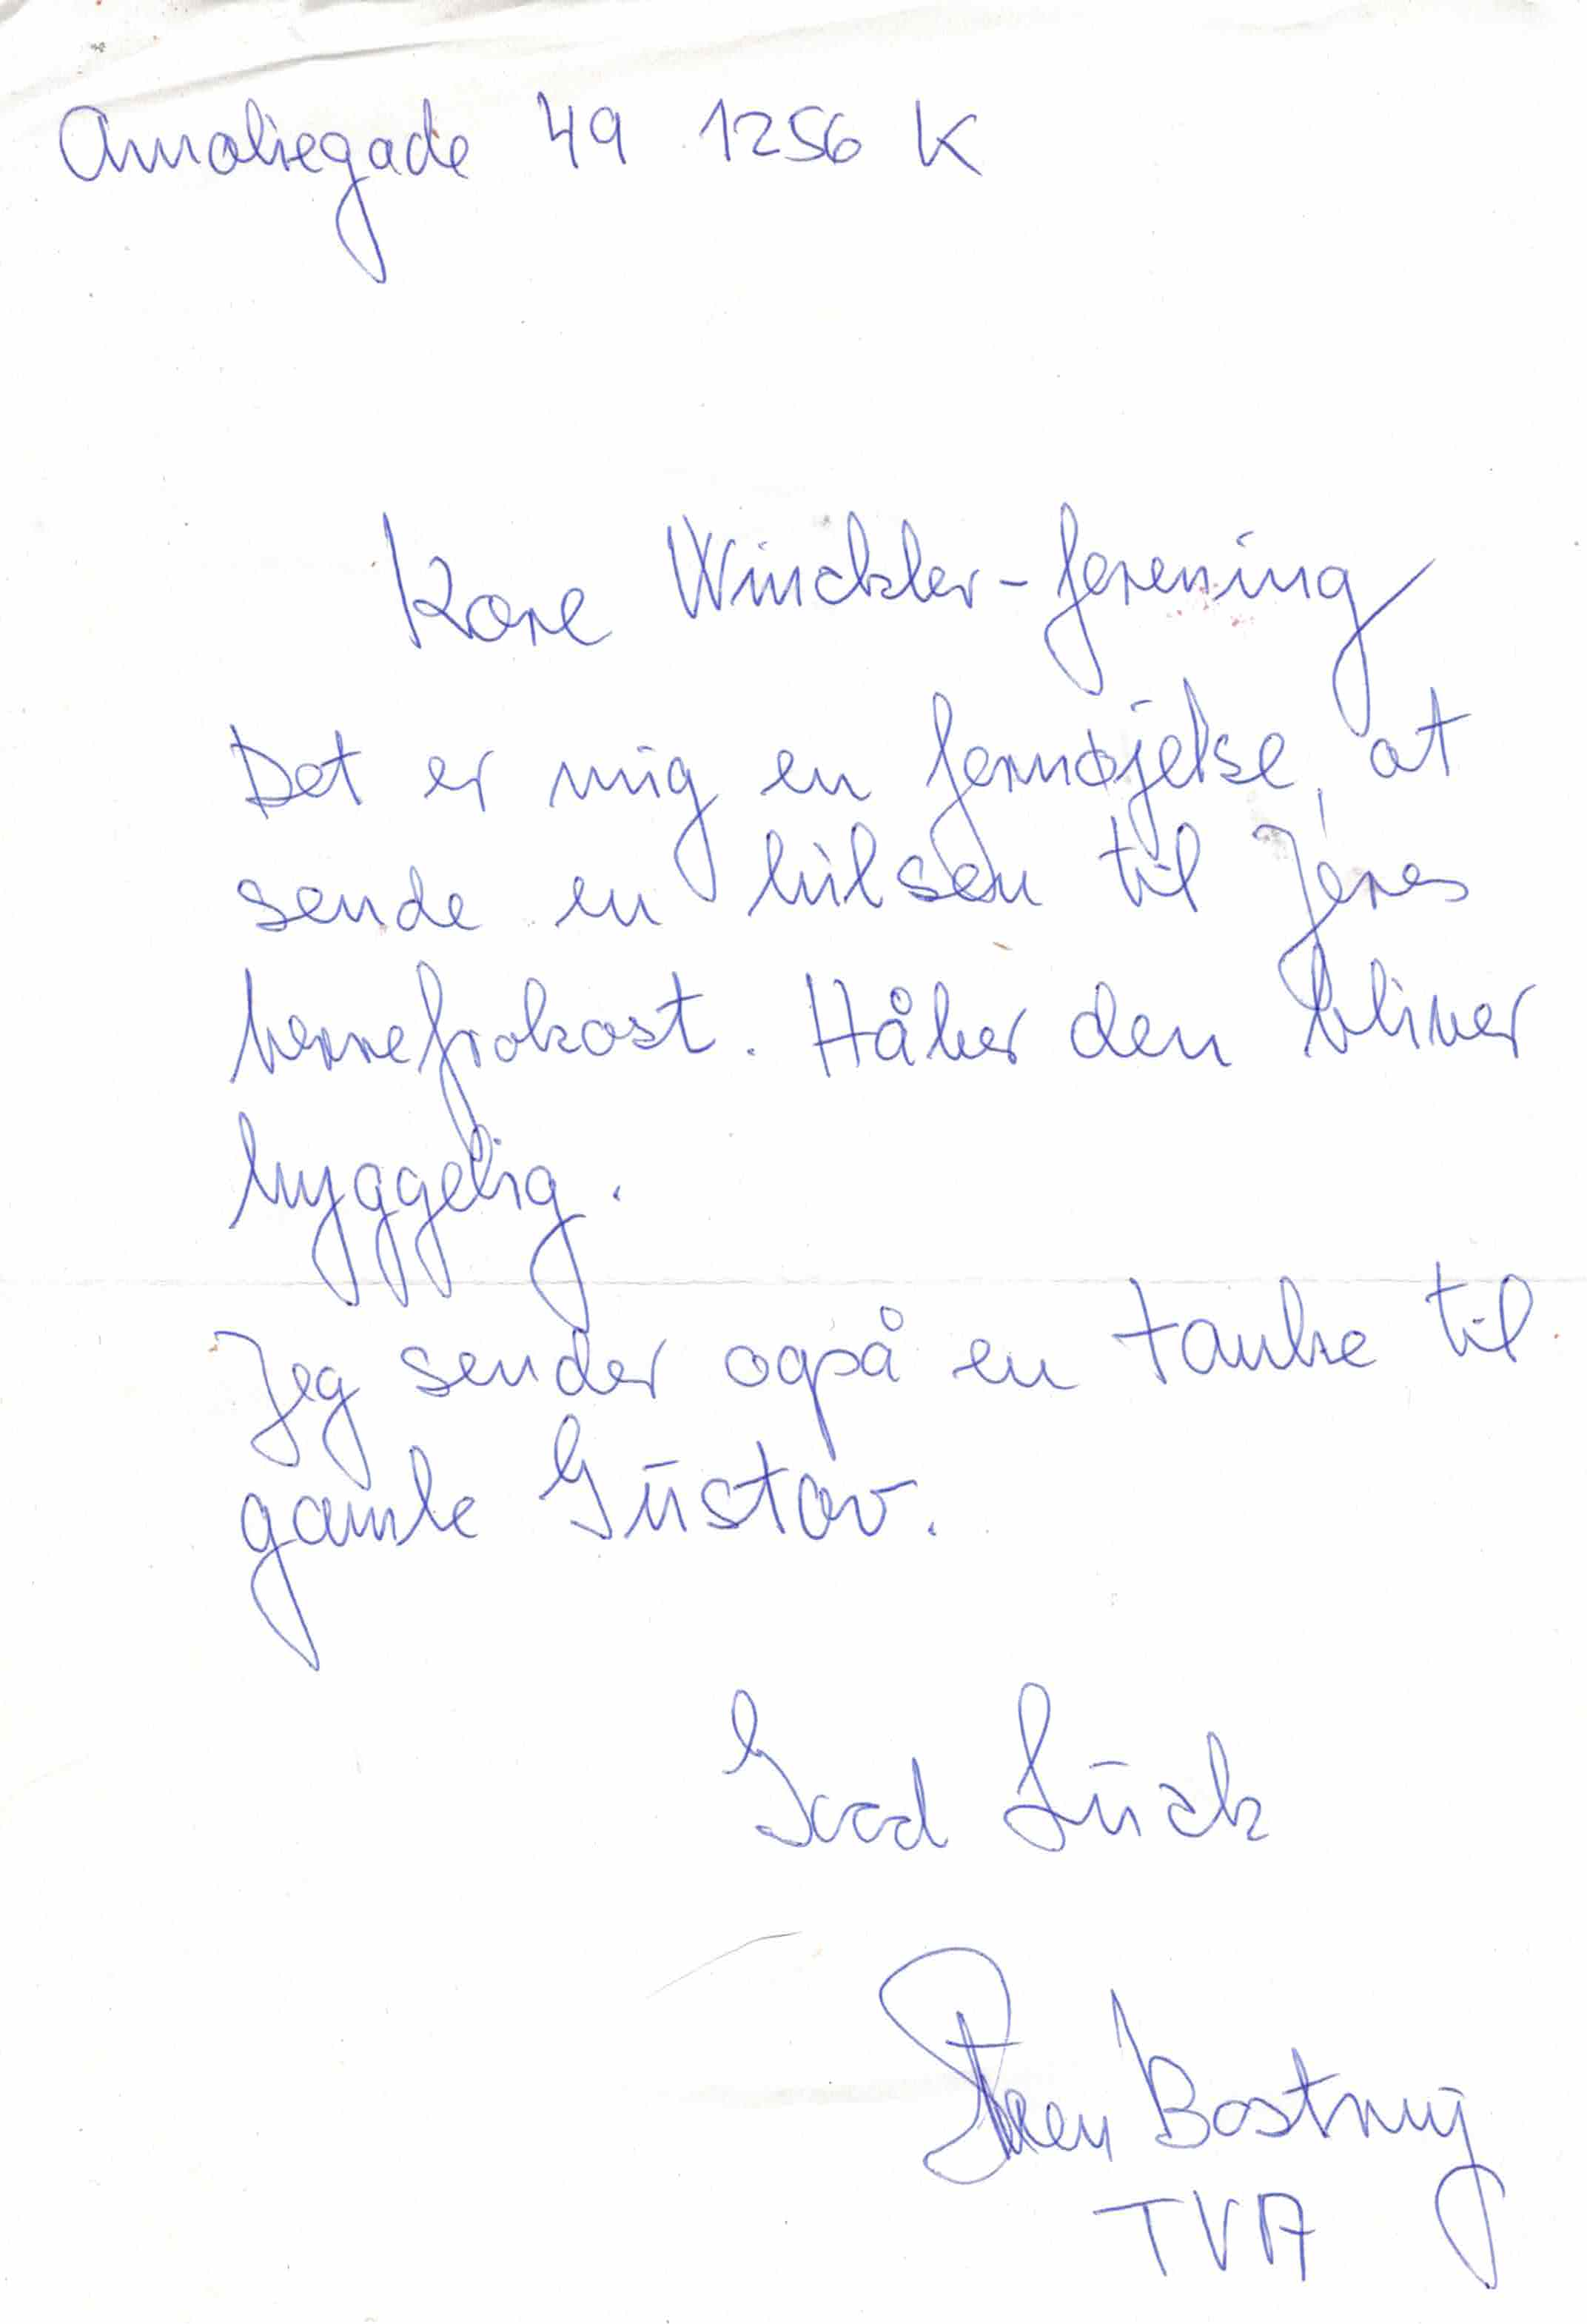 Amaliegade 49 1256 K
Kære Winckler-forening
Det er mig en fornøjelse, at
sende en hilsen til Jeres
herrefrokost. Håber den bliver
hyggelig.
Jeg sender også en tanke til
gamle Gustav.
Good Luck
Steen Bostrup
TVA